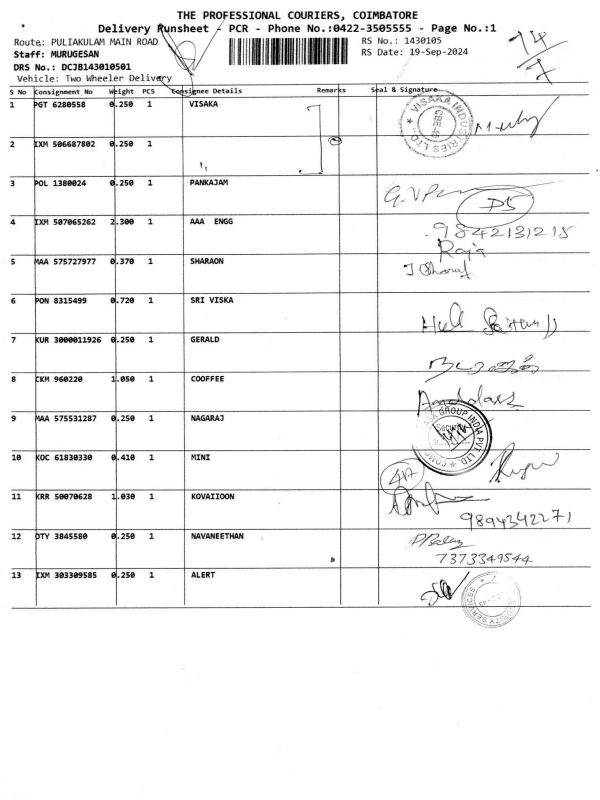 THE PROFESSIONAL COURIERS, COIMBATORE
Delivery Runsheet - PCR - Phone No.:0422-3505555 - Page No.:1
Route: PULIAKULAM MAIN ROAD
RS No.: 1430105
Staff: MURUGESAN
RS Date: 19-Sep-2024
DRS No.: DCJB143010501
Vehicle: Two Wheeler Delivery
14/7
S No Consignment No Weight PCS Consignee Details Remarks Seal & Signature
1 PGT 6280558 0.250 1 VISAKA
VISAKA INDUSTRIES LTD CBE-45
2 IXM 506687802 0.250 1
3 POL 1380024 0.250 1 PANKAJAM
D5
4 IXM 507065262 2.300 1 AAA ENGG
9842131215
Raja
5 MAA 575727977 0.370 1 SHARAON
6 PON 8315499 0.720 1 SRI VISKA
7 KUR 3000011926 0.250 1 GERALD
8 CKM 960220 1.050 1 COOFFEE
9 MAA 575531287 0.250 1 NAGARAJ
GROUP INDIA PVT LTD Security
10 KOC 61830330 0.410 1 MINI
4A
11 KRR 50070628 1.030 1 KOVAIIOON
9894342271
12 OTY 3845580 0.250 1 NAVANEETHAN
7373349544
13 IXM 303309585 0.250 1 ALERT
SECURITY SERVICES